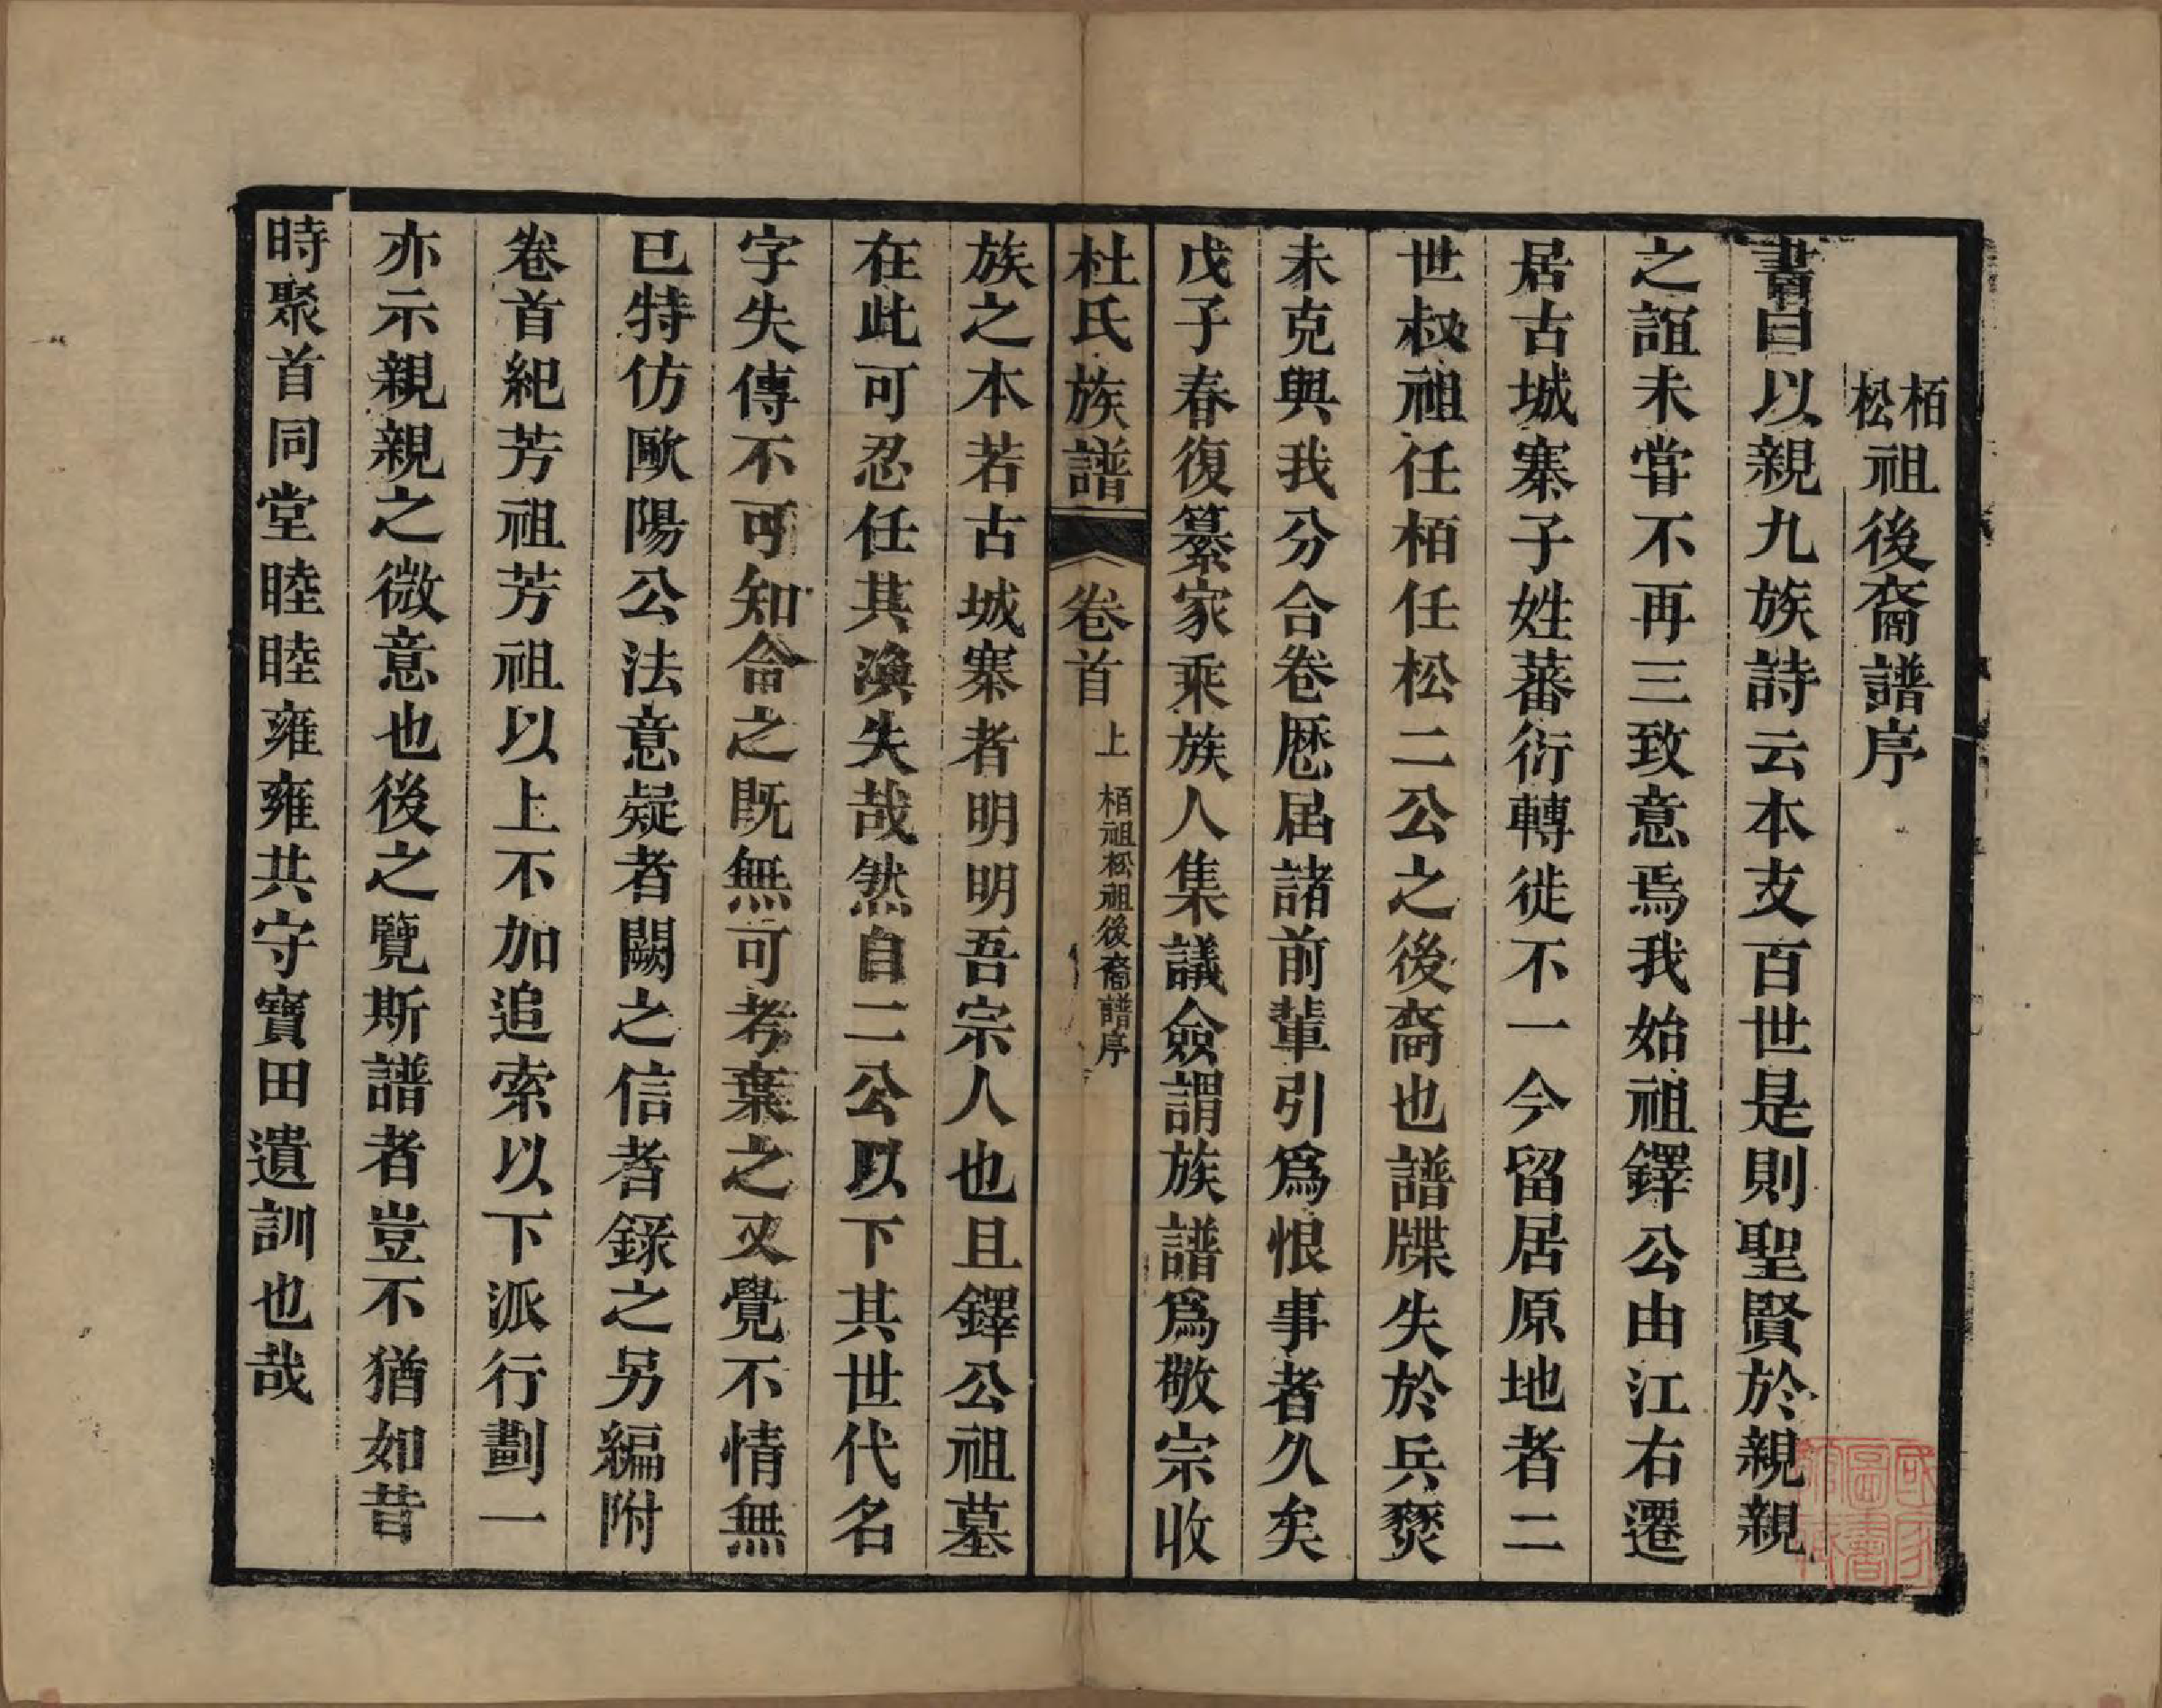 栢松祖後裔譜序
書曰以親九族詩云本支百世是則聖賢於親親
之誼未甞不再三致意焉我始祖鐸公由江右遷
居古城寨子姓蕃衍轉徙不一今留居原地者二
世叔祖任栢任松二公之後裔也譜牒失於兵燹
未克與我分合卷厯届諸前輩引爲恨事者久矣
戊子春復纂家乘族人集議僉謂族譜爲敬宗收
杜氏族譜 卷首 上 栢祖松祖後裔譜序
族之本若古城寨者明明吾宗人也且鐸公祖墓
在此可忍任其渙失哉然自二公以下其世代名
字失傳不可知侖之既無可考棄之又覺不情無
已特仿歐陽公法意疑者闕之信者錄之另編附
卷首紀芳祖芳祖以上不加追索以下派行劃一
亦示親親之微意也後之覽斯譜者豈不猶如昔
時聚首同堂睦睦雍雍共守寶田遺訓也哉
國家圖書館藏